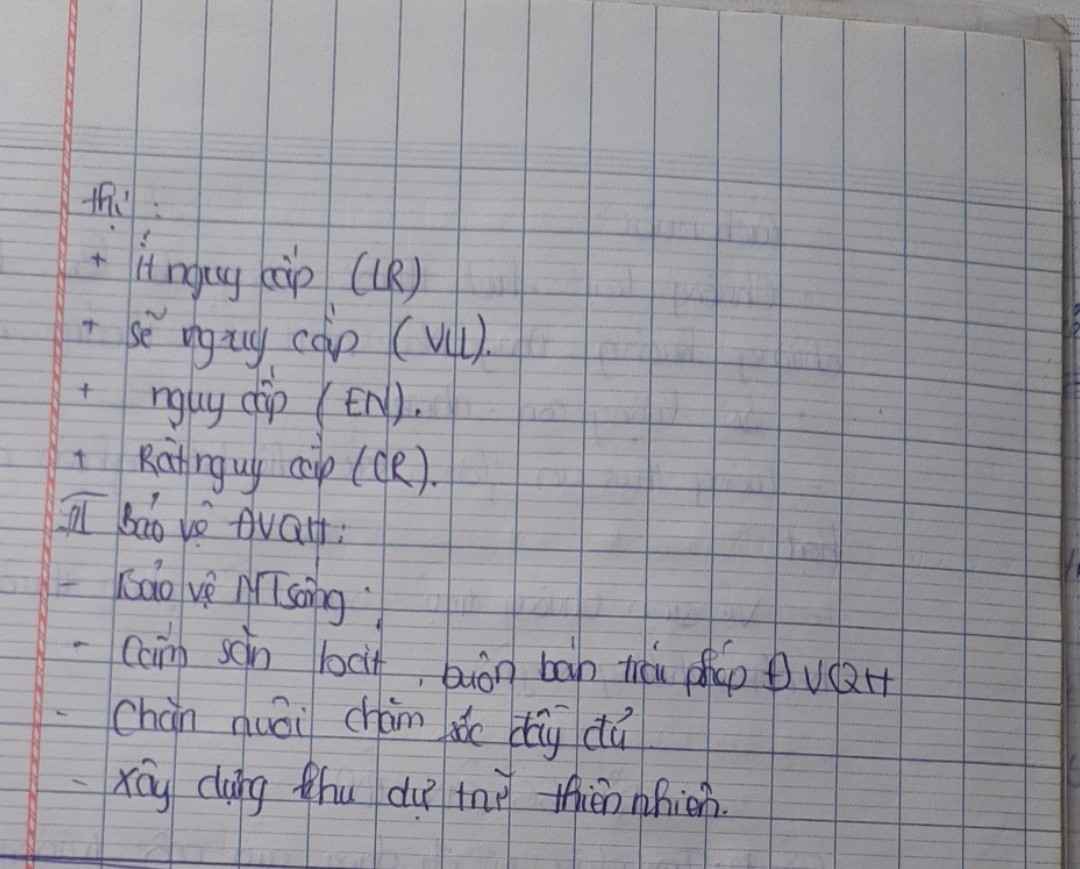 thị :
+ ít nguy cấp (LR)
+ sẽ nguy cấp (VU).
+ nguy cấp (EN).
+ Rất nguy cấp (CR).
II Bảo vệ ĐVQH:
- Bảo vệ MT sống
- Cấm săn bắt, buôn bán trái pháp ĐVQH
- Chăn nuôi chăm sóc đầy đủ
- Xây dựng khu dự trữ thiên nhiên.